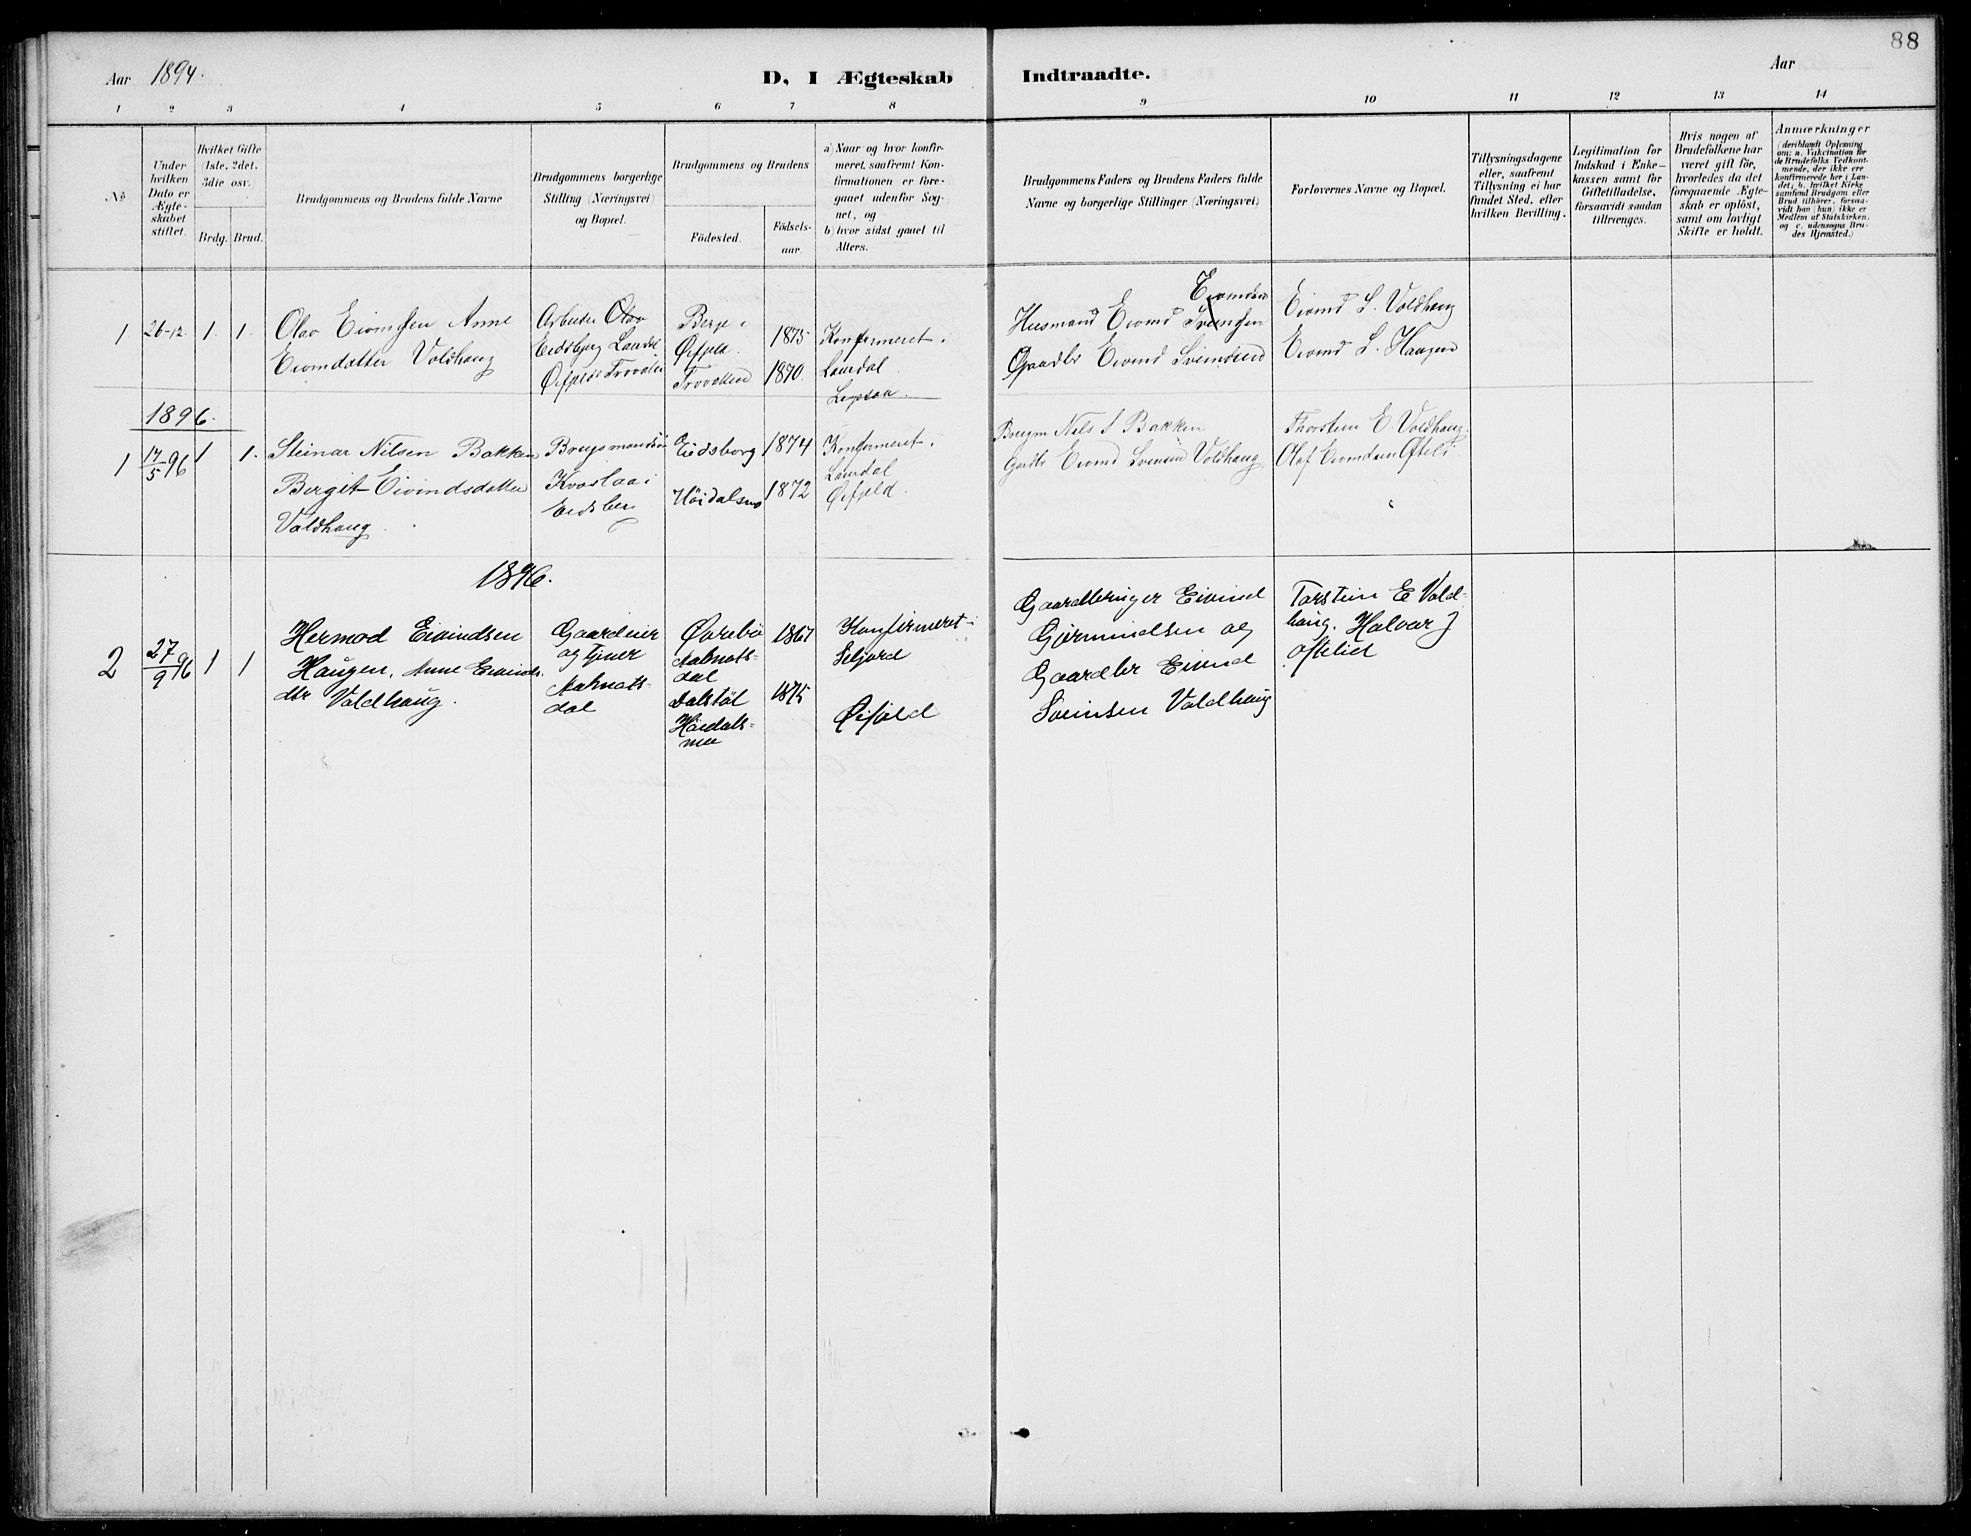 88
Aar 1894.
D, I Ægteskab Indtraadte.
Aar
1 2 3 4 5 6 7 8 9 10 11 12 13 14
No.
Under hvilken Dato er Ægteskabet stiftet.
Hvilket Gifte 1ste, 2det, 3die osv.
Brdg. Brud.
Brudgommens og Brudens fulde Navne
Brudgommens borgerlige Stilling (Næringsvei) og Bopæl.
Brudgommens og Brudens
Fødested.
Fødselsaar.
a) Naar og hvor konfirmeret, saafremt Konfirmationen er foregaaet udenfor Sognet, og
b) hvor sidst gaaet til Alters.
Brudgommens Faders og Brudens Faders fulde Navne og borgerlige Stillinger (Næringsvei)
Forlovernes Navne og Bopæl.
Tillysningsdagene eller, saafremt Tillysning ei har fundet Sted, efter hvilken Bevilling.
Legitimation for Indskud i Enkekassen samt for Giftetilladelse, forsaavidt saadan tiltrænges.
Hvis nogen af Brudefolkene har været gift før, hvorledes da det foregaaende Ægteskab er opløst, samt om lovligt Skifte er holdt.
Anmærkninger (deriblandt Oplysning om: a. Vakcination for de Brudefolks Vedkommende, der ikke ere konfirmerede her i Landet; b. hvilket Kirkesamfund Brudgom eller Brud tilhører, forsaavidt han (hun) ikke er Medlem af Statskirken, og c. udensogns Brudes Hjemsted.)
1 26-12. 1. 1.
Olav Eivindsen Anne
Eivindatter Voldhaug
Arbeider Olav
Eidsborg Laurdal
Berge i
Øifjeld.
Trovatten
1875
1870.
Konfirmeret i
Laurdal
Husmand Eivind Eivindsen
Gaardbr Eivind Sveinsen
Eivind S. Voldhaug
Eivind S. Haugen
1896.
1 17/5 96 1 1.
Steinar Nilsen Bakken
Bergit Eivindsdatter
Valdhaug
Brugsmandssøn
Kvaalaa i
Eidsborg
Eidsborg
Høidalsmo
1874
1872
Konfirmeret i
Laurdal
Øifjeld.
Brugm Nils S Bakken
Gardbr Eivind Sveinsen Voldhaug
Thorstein E. Voldhaug.
Olaf Eivindsen Øfteli
1896.
2 27/9 96 1 1
Hermod Eivindsen
Haugen, Anne Eivinds.
dtr Valdhaug.
Gaardeier
og tjener
Aamotsdal
Øvrebø
Aamotsdal
Dalstøl
Høidalsmo
1867
1875
Konfirmeret i
Seljord
Øifjeld
Gaardbruger Eivind
Gjermundsen og
Gaardbr Eivind
Sveinsen Valdhaug
Torstein E Valdhaug. Halvar J
Oftelid